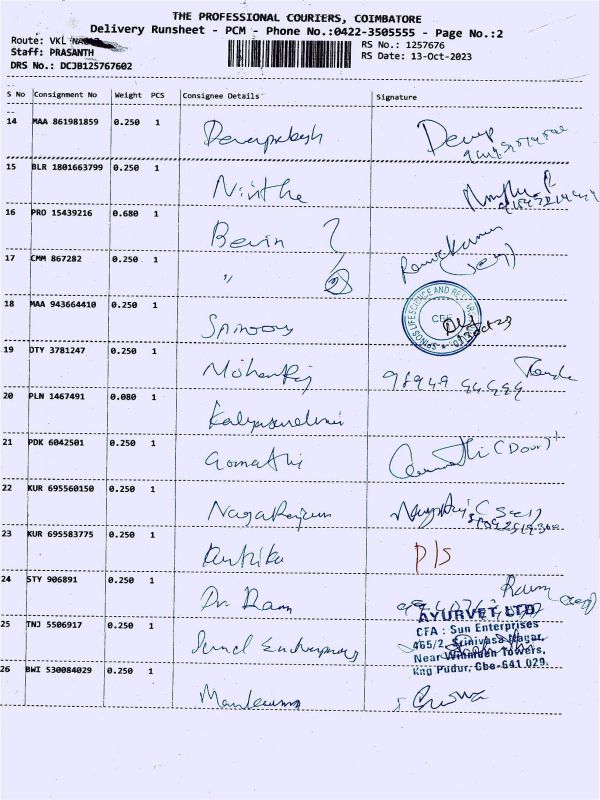 THE PROFESSIONAL COURIERS, COIMBATORE
Delivery Runsheet - PCM - Phone No.:0422-3505555 - Page No.:2
Route: VKL NAGAR
Staff: PRASANTH
DRS No.: DCJB125767602
RS No.: 1257676
RS Date: 13-Oct-2023
S No Consignment No Weight PCS Consignee Details Signature
14 MAA 861981859 0.250 1 Devaprakash
15 BLR 1801663799 0.250 1 Nivitha
16 PRO 15439216 0.680 1 Bevin
17 CMM 867282 0.250 1 " Ramkumar
18 MAA 943664410 0.250 1
SPINOS LIFESCIENCE AND RESEARCH
19 OTY 3781247 0.250 1 Mohanraj
20 PLN 1467491 0.080 1
21 PDK 6042501 0.250 1 Gomathi Gomathi
22 KUR 695560150 0.250 1 Nagarajan
23 KUR 695583775 0.250 1 Kritika P/S
24 STY 906891 0.250 1 Dr Ram
25 TNJ 5506917 0.250 1
AYURVET LTD
CFA : Sun Enterprises
465/2, Srinivasa Nagar,
Near Windmen Towers,
Kng Pudur, Cbe-641 029.
26 BWI 530084029 0.250 1